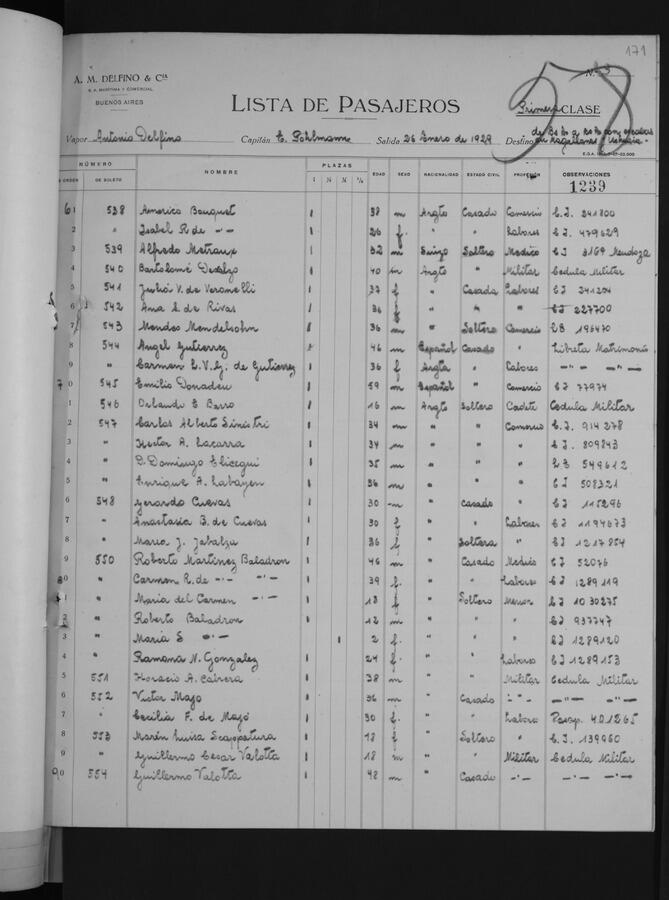 171
A. M. DELFINO & Cía
S. A. MARÍTIMA Y COMERCIAL
BUENOS AIRES
LISTA DE PASAJEROS
58
Primera CLASE
Vapor Antonio Delfino Capitán E. Pohlmann Salida 26 Enero de 1929 Destino
NÚMERO NOMBRE PLAZAS EDAD SEXO NACIONALIDAD ESTADO CIVIL PROFESIÓN OBSERVACIONES
DE ORDEN DE BOLETO 1 ½ ¼ 1239
6 1 538 Americo Bouquet 1 38 m Argto Casado Comercio C.I. 241800
2 " Isabel R. de -"- 1 26 f. " " Labores C.I. 479629
3 539 Alfredo Metraux 1 32 m Suizo Soltero Medico C.I. 3169 Mendoza
4 540 Bartolomé Descalzo 1 40 m Argto " Militar Cedula Militar
5 541 Julia V. de Veronelli 1 37 f " Casada Labores C.I. 241204
6 542 Ana L. de Rivas 1 36 f " " " C.I. 227700
7 543 Mendes Mendelsohn 1 36 m " Soltero Comercio 196470
8 544 Angel Gutierrez 1 46 m Español Casado " Libreta Matrimonio
9 " Carmen L. V. G. de Gutierrez 1 36 f Argta " Labores -"- -"-
7 0 545 Emilio Donadeu 1 59 m Español " Comercio C.I. 77974
1 546 Orlando E Berro 1 16 m Argto Soltero Cadete Cedula Militar
2 547 Carlos Alberto Sinistri 1 34 m " " Comercio C.I. 914278
3 " Hector A. Lacarra 1 34 m " " " C.I. 809843
4 " P. Domingo Elicegui 1 35 m " " " 549612
5 " Enrique A. Labayen 1 36 m " " " C.I. 508321
6 548 Gerardo Cuevas 1 30 m " Casado " C.I. 115296
7 " Anastasia B. de Cuevas 1 30 f " " Labores C.I. 1194673
8 " Maria J. Zabalza 1 36 f " Soltera " C.I. 1217854
9 550 Roberto Martinez Baladron 1 46 m " Casado Medico C.I. 52076
8 0 " Carmen R. de -"- -"- 1 39 f. " " Labores C.I. 1289119
1 " Maria del Carmen -"- 1 13 f " Soltero Menor C.I. 1030275
2 " Roberto Baladron 1 12 m " " " C.I. 937747
3 " Maria S -"- 1 2 f. " " " C.I. 1289120
4 " Ramona N. Gonzalez 1 24 f " " Labores C.I. 1289153
5 551 Horacio A. Cabrera 1 38 m " " Militar Cedula Militar
6 552 Victor Majo 1 36 m " Casado -"- -"- -"-
7 " Cecilia F. de Majó 1 30 f. " " Labores Pasap. 401265
8 553 Maria Luisa Scappatura 1 18 f " Soltero " C.I. 139960
9 " Guillermo Cesar Valotta 1 18 m " " Militar Cedula Militar
9 0 554 Guillermo Valotta 1 42 m " Casado -"- -"-